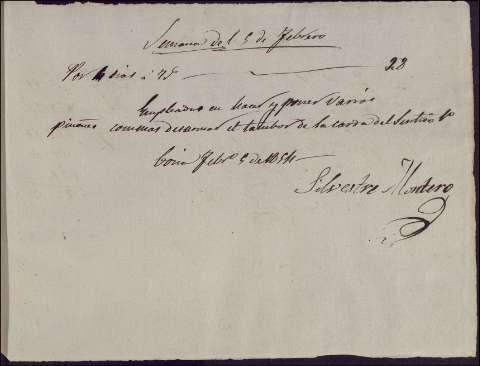 Semana del 5 de Febrero
Por 4 dias á 7 rs 28
Empleados en hacer y poner varios
piñones como mas desarmar el tambor de la carda del Surtido 1º
Coria Febº 5 de 1854
Silvestre Montero